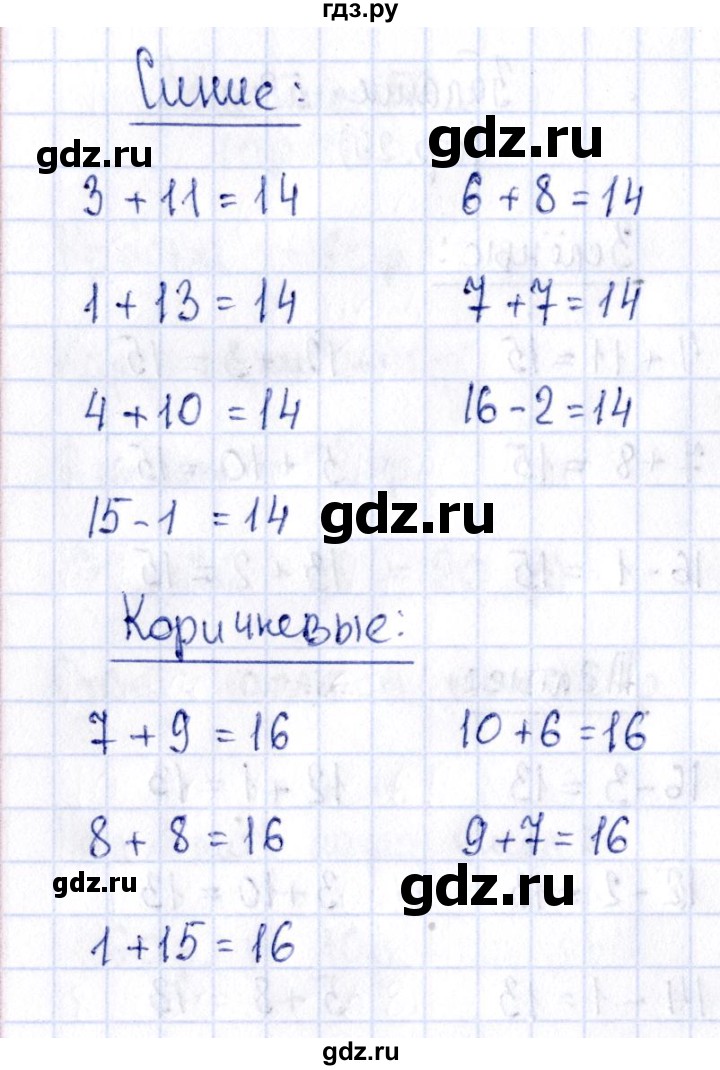 гдз.ру
Синие:
gdz.ru gdz.ru
3 + 11 = 14 6 + 8 = 14
1 + 13 = 14 7 + 7 = 14
4 + 10 = 14 16 - 2 = 14
15 - 1 = 14 gdz.ru
Коричневые:
7 + 9 = 16 10 + 6 = 16
8 + 8 = 16 9 + 7 = 16
gdz.ru gdz.ru
1 + 15 = 16
gdz.ru